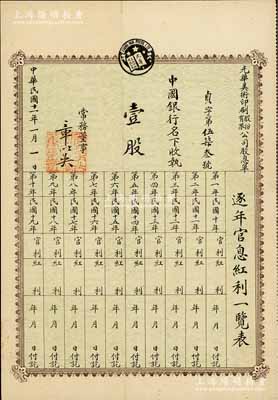 上海陽明拍賣
光華美術印刷股份有限公司股息單
貞字第伍拾叁號
中國銀行名下收執
壹股
常務董事
中華民國十一年一月一日
逐年官息紅利一覽表
第一年民國十年 官利 紅利 年 月 日付訖
第二年民國十一年 官利 紅利 年 月 日付訖
第三年民國十二年 官利 紅利 年 月 日付訖
第四年民國十三年 官利 紅利 年 月 日付訖
第五年民國十四年 官利 紅利 年 月 日付訖
第六年民國十五年 官利 紅利 年 月 日付訖
第七年民國十六年 官利 紅利 年 月 日付訖
第八年民國十七年 官利 紅利 年 月 日付訖
第九年民國十八年 官利 紅利 年 月 日付訖
第十年民國十九年 官利 紅利 年 月 日付訖